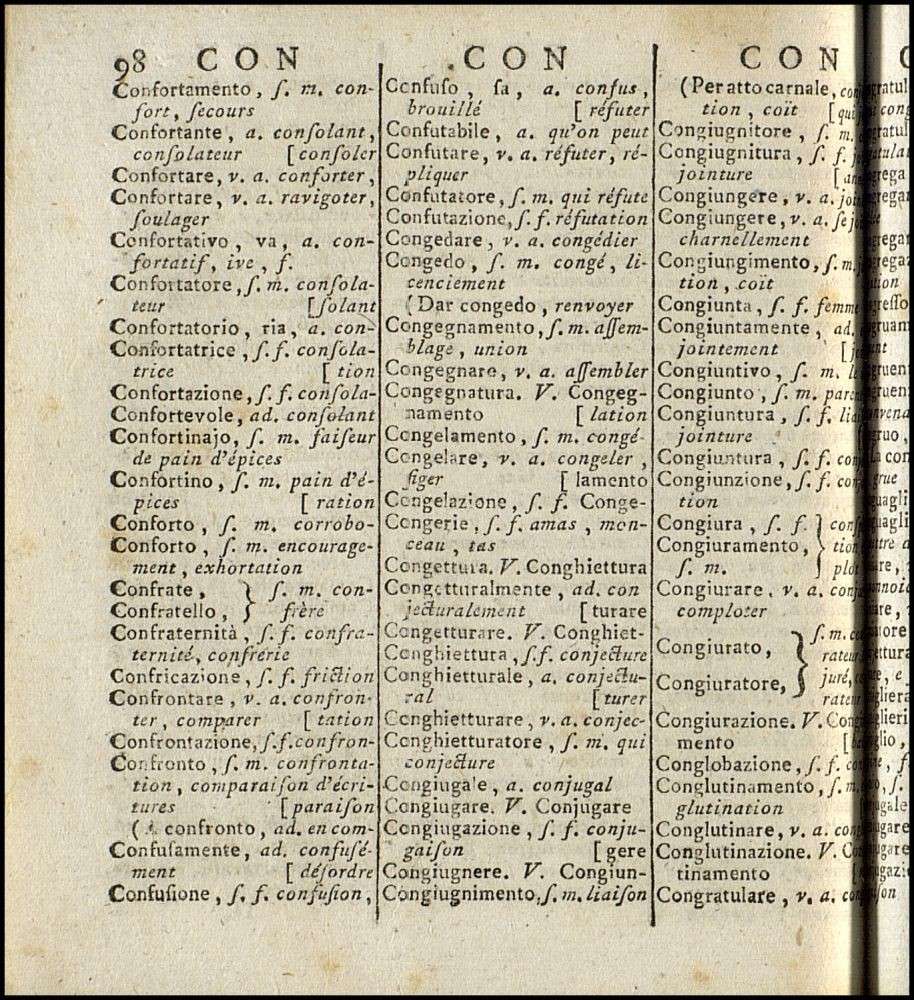 98 CON
Confortamento, ſ. m. con-
fort, ſecours
Confortante, a. conſolant,
conſolateur [conſoler
Confortare, v. a. conforter,
Confortare, v. a. ravigoter,
ſoulager
Confortativo, va, a. con-
fortatif, ive, f.
Confortatore, ſ. m. conſola-
teur [ſolant
Confortatorio, ria, a. con-
Confortatrice, ſ. f. conſola-
trice [tion
Confortazione, ſ. f. conſola-
Confortevole, ad. conſolant
Confortinajo, ſ. m. faiſeur
de pain d'épices
Confortino, ſ. m. pain d'é-
pices [ration
Conforto, ſ. m. corrobo-
Conforto, ſ. m. encourage-
ment, exhortation
Confrate, } ſ. m. con-
Confratello, } frère
Confraternità, ſ. f. confra-
ternité, confrérie
Confricazione, ſ. f. friction
Confrontare, v. a. confron-
ter, comparer [tation
Confrontazione, ſ. f. confron-
Confronto, ſ. m. confronta-
tion, comparaiſon d'écri-
tures [paraiſon
(A confronto, ad. en com-
Confuſamente, ad. confuſé-
ment [déſordre
Confuſione, ſ. f. confuſion,
CON
Confuſo, ſa, a. confus,
brouillé [réfuter
Confutabile, a. qu'on peut
Confutare, v. a. réfuter, ré-
pliquer
Confutatore, ſ. m. qui réfute
Confutazione, ſ. f. réfutation
Congedare, v. a. congédier
Congedo, ſ. m. congé, li-
cenciement
(Dar congedo, renvoyer
Congegnamento, ſ. m. aſſem-
blage, union
Congegnare, v. a. aſſembler
Congegnatura. V. Congeg-
namento [lation
Congelamento, ſ. m. congé-
Congelare, v. a. congeler,
figer [lamento
Congelazione, ſ. f. Conge-
Congerie, ſ. f. amas, mon-
ceau, tas
Congettura. V. Conghiettura
Congetturalmente, ad. con
jecturalement [turare
Congetturare. V. Conghiet-
Conghiettura, ſ. f. conjecture
Conghietturale, a. conjectu-
ral [turer
Conghietturare, v. a. conjec-
Conghietturatore, ſ. m. qui
conjecture
Congiugale, a. conjugal
Congiugare. V. Conjugare
Congiugazione, ſ. f. conju-
gaiſon [gere
Congiugnere. V. Congiun-
Congiugnimento, ſ. m. liaiſon
CON
(Per atto carnale,
tion, coït
Congiugnitore, ſ. m.
Congiugnitura, ſ. f.
jointure
Congiungere, v. a.
Congiungere, v. a. ſe
charnellement
Congiungimento, ſ. m.
tion, coït
Congiunta, ſ. f. femme
Congiuntamente, ad.
jointement
Congiuntivo, ſ. m.
Congiunto, ſ. m.
Congiuntura, ſ. f.
jointure
Congiuntura, ſ. f.
Congiunzione, ſ. f.
tion
Congiura, ſ. f. }
Congiuramento, }
ſ. m. }
Congiurare, v. a.
comploter
Congiurato, } ſ. m.
Congiuratore, }
Congiurazione. V.
mento
Conglobazione, ſ. f.
Conglutinamento, ſ. m.
glutination
Conglutinare, v. a.
Conglutinazione. V.
tinamento
Congratulare, v. a.